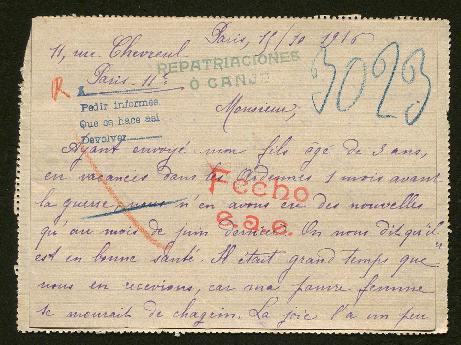 Paris, 15/10 1916
11, rue Chevreul
Paris. 11e
REPATRIACIONES
O CANJE
3023
R
Pedir informes
Que se hace así
Devolver
Monsieur,
Ayant envoyé mon fils âgé de 3 ans,
en vacances dans les Ardennes 1 mois avant
la guerre, nous n'en avons eu des nouvelles
qu'au mois de juin dernier. On nous dit qu'il
est en bonne santé. Il était grand temps que
nous en recevions, car ma pauvre femme
se mourait de chagrin. La joie l'a un peu
Fecho